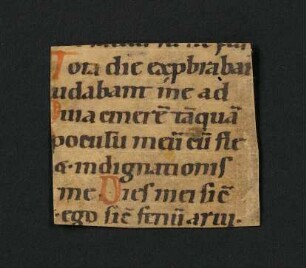 Tota die exp̱brabar
udabant me ad
uia cinerē tāquā
poculū meū cū fle
& indignationis
me Dies mei sic̄
ego sic̄ fenū arui.